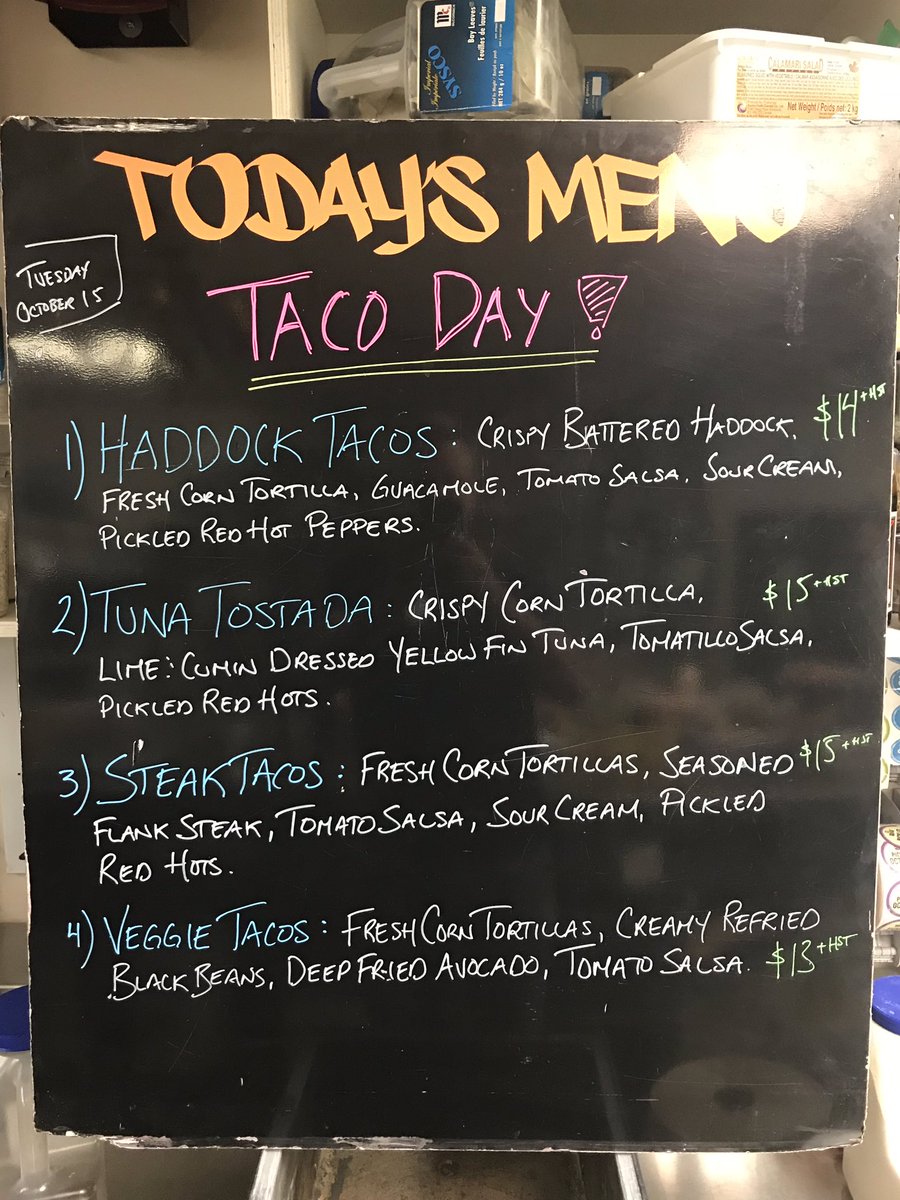 Bay Leaves
Feuilles de laurier
Imperial
SYSCO
CALAMARI SALAD
Net Weight / Poids net 2 kg
TODAY'S MENU
TUESDAY
OCTOBER 15
TACO DAY!
1) HADDOCK TACOS: CRISPY BATTERED HADDOCK, $14 +HST
FRESH CORN TORTILLA, GUACAMOLE, TOMATO SALSA, SOUR CREAM,
PICKLED RED HOT PEPPERS.
2) TUNA TOSTADA: CRISPY CORN TORTILLA, $15 +HST
LIME: CUMIN DRESSED YELLOW FIN TUNA, TOMATILLO SALSA,
PICKLED RED HOTS.
3) STEAK TACOS: FRESH CORN TORTILLAS, SEASONED $15 +HST
FLANK STEAK, TOMATO SALSA, SOUR CREAM, PICKLED
RED HOTS.
4) VEGGIE TACOS: FRESH CORN TORTILLAS, CREAMY REFRIED
BLACK BEANS, DEEP FRIED AVOCADO, TOMATO SALSA. $13 +HST